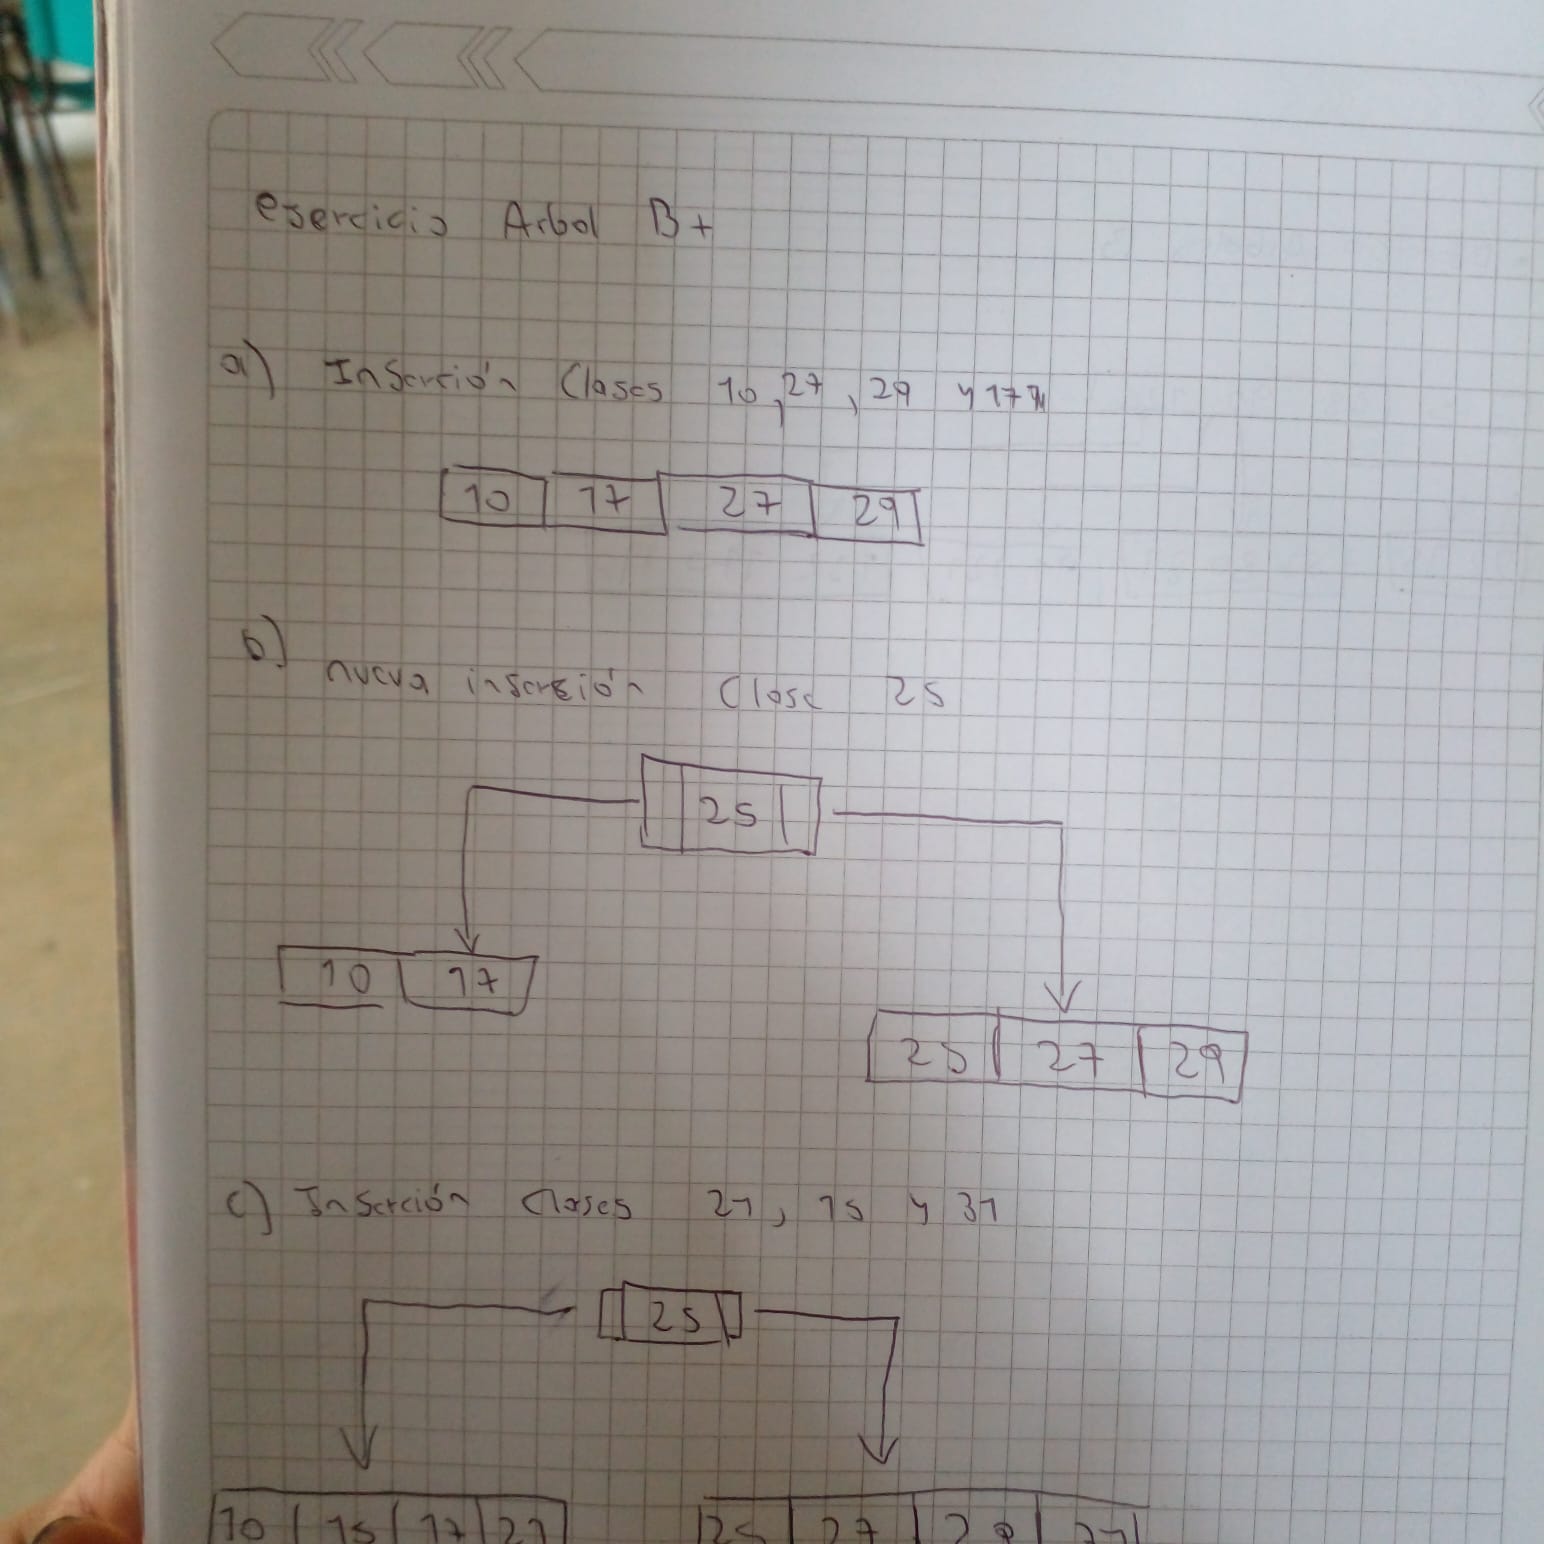 ejercicio Arbol B+
a) Inserción Clases 10, 27, 29 y 17
10 17 27 29
b)
nueva inserción Clase 25
25
10 17
25 27 29
c) Inserción Clases 21, 15 y 31
25
10 15 17 21
25 27 29 31